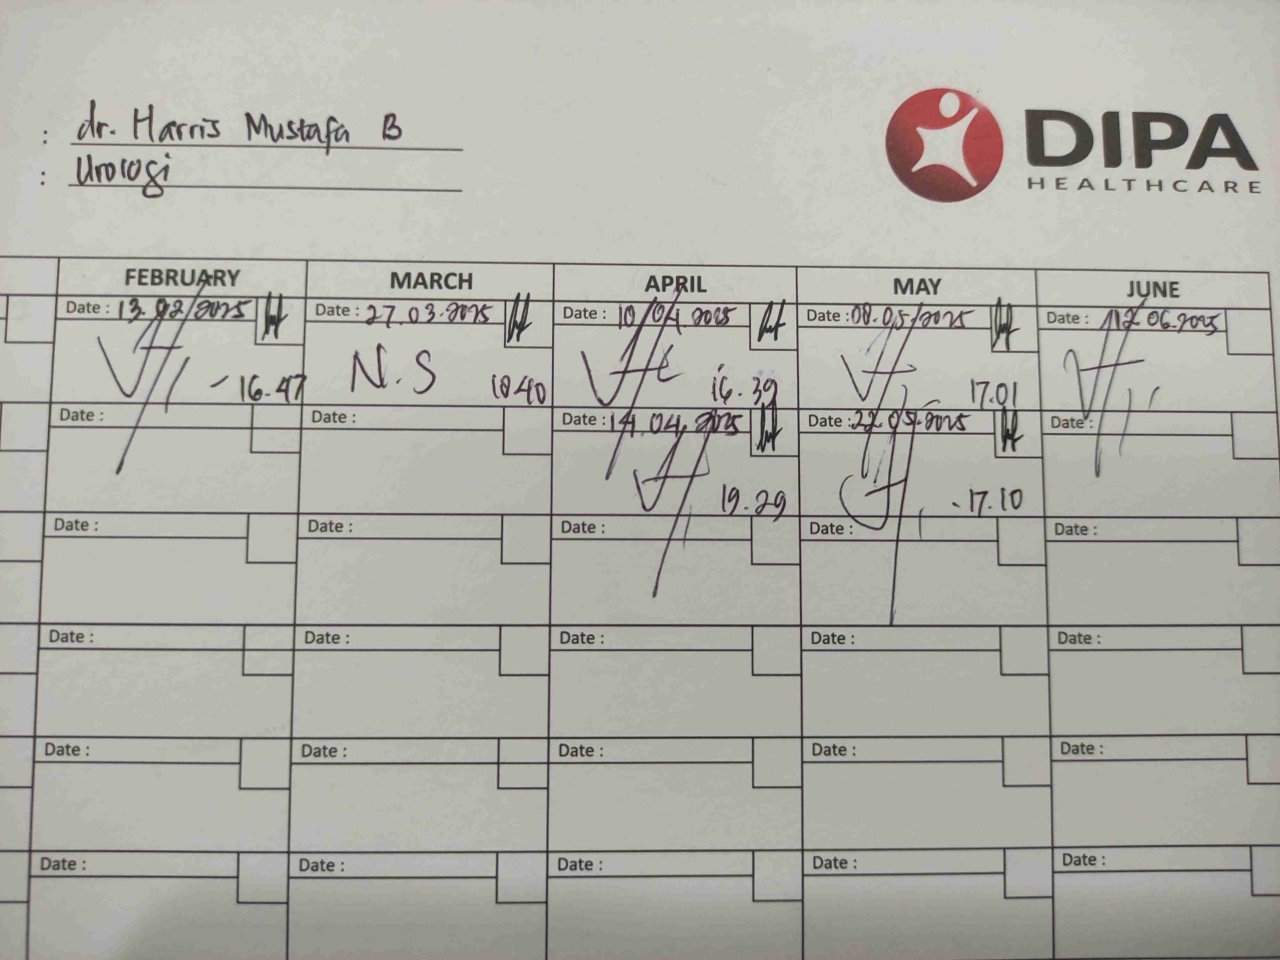 : dr. Harris Mustafa B
: Urologi
DIPA
HEALTHCARE
FEBRUARY MARCH APRIL MAY JUNE
Date : 13.02/2025 Date : 27.03.2025 Date : 10/04.2025 Date : 08.05/2025 Date : 12.06.2025
16.47 N.S 16.39 17.01
Date : Date : Date : 14.04.2025 Date : 22.05.2025 Date :
19.29 17.10
Date : Date : Date : Date : Date :
Date : Date : Date : Date : Date :
Date : Date : Date : Date : Date :
Date : Date : Date : Date : Date :